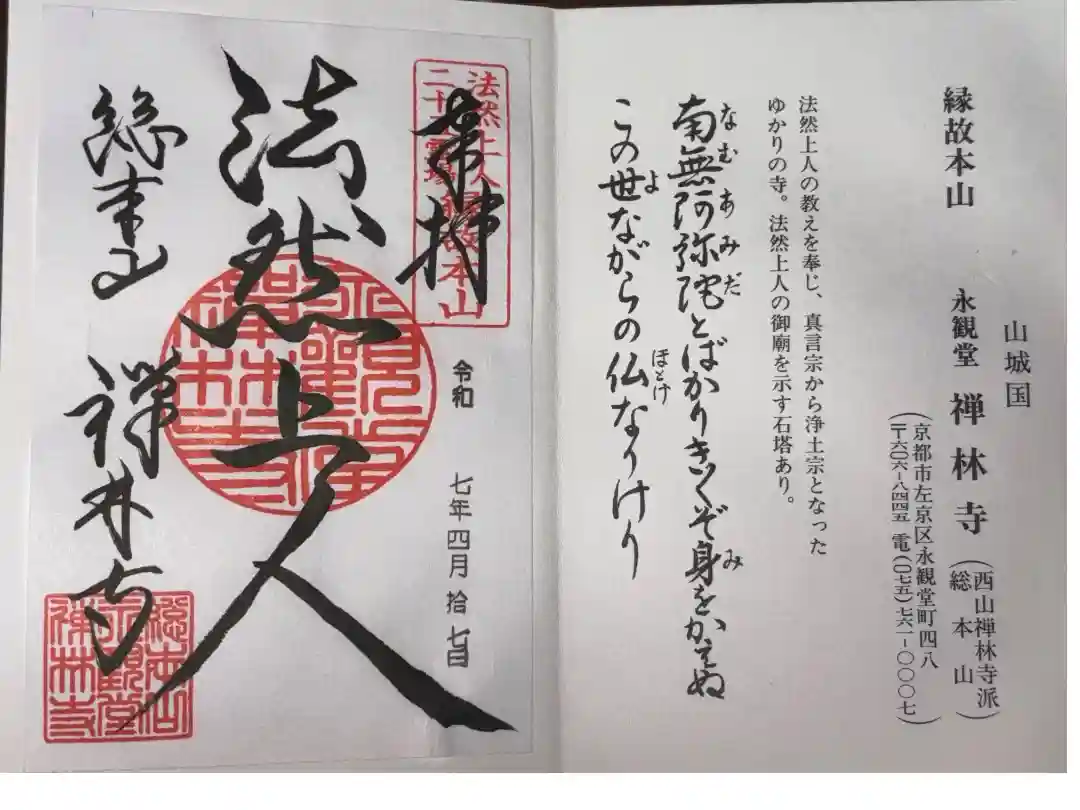 山城国
縁故本山 永観堂 禅林寺(西山禅林寺派 総本山)
(京都市左京区永観堂町四八
〒六〇六-八四四五 電(〇七五)七六一-〇〇〇七)
法然上人の教えを奉じ、真言宗から浄土宗となった
ゆかりの寺。法然上人の御廟を示す石塔あり。
なむあみだ み
南無阿弥陀とばかりきくぞ身をかえぬ
よ ほとけ
この世ながらの仏なりけり
法然上人
二十五霊場 縁故本山
奉拝
令和 七年四月 拾七日
法然上人
永観堂
禅林寺
総本山 禅林寺
総本山
永観堂
禅林寺